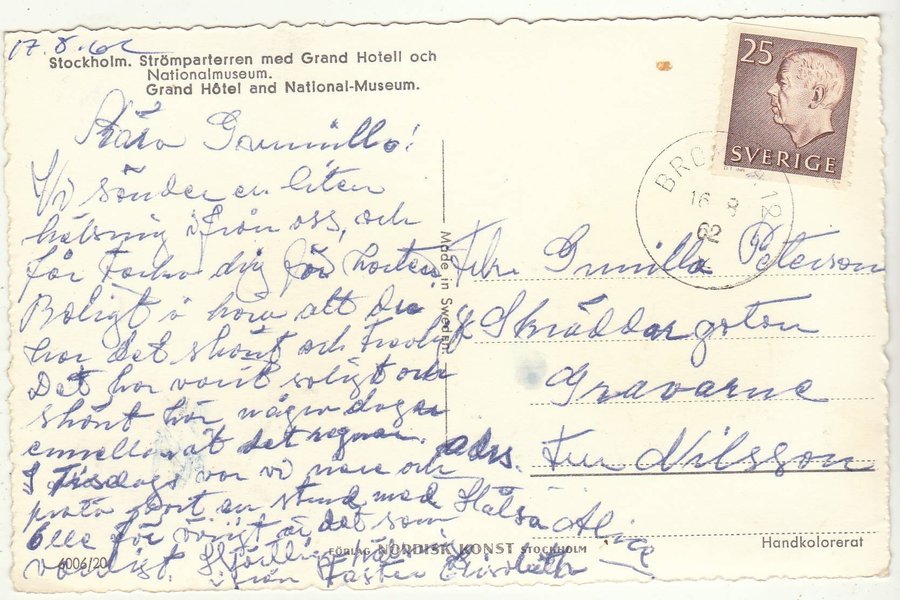 17.8.62
Stockholm. Strömparterren med Grand Hotell och
Nationalmuseum.
Grand Hôtel and National-Museum.
Kära Gunilla!
Vi sänder en liten
hälsning ifrån oss, och
får tacka dig för korten.
Roligt å höra att du
har det skönt och trevligt
Det har varit soligt och
skönt här några dagar
emellanåt det regnar.
I Tisdags var vi och
prata en stund med
Olle för övrigt är det som
vanligt. Hjärtliga
ifrån Faster
Hälsa Alice
Made in Sweden.
25
SVERIGE
BRO 12
16 8
62
Gunilla Peterson
Skräddargatan
Gravarne
adrs. Nilsson
FÖRLAG NORDISK KONST STOCKHOLM
Handkolorerat
6006/20